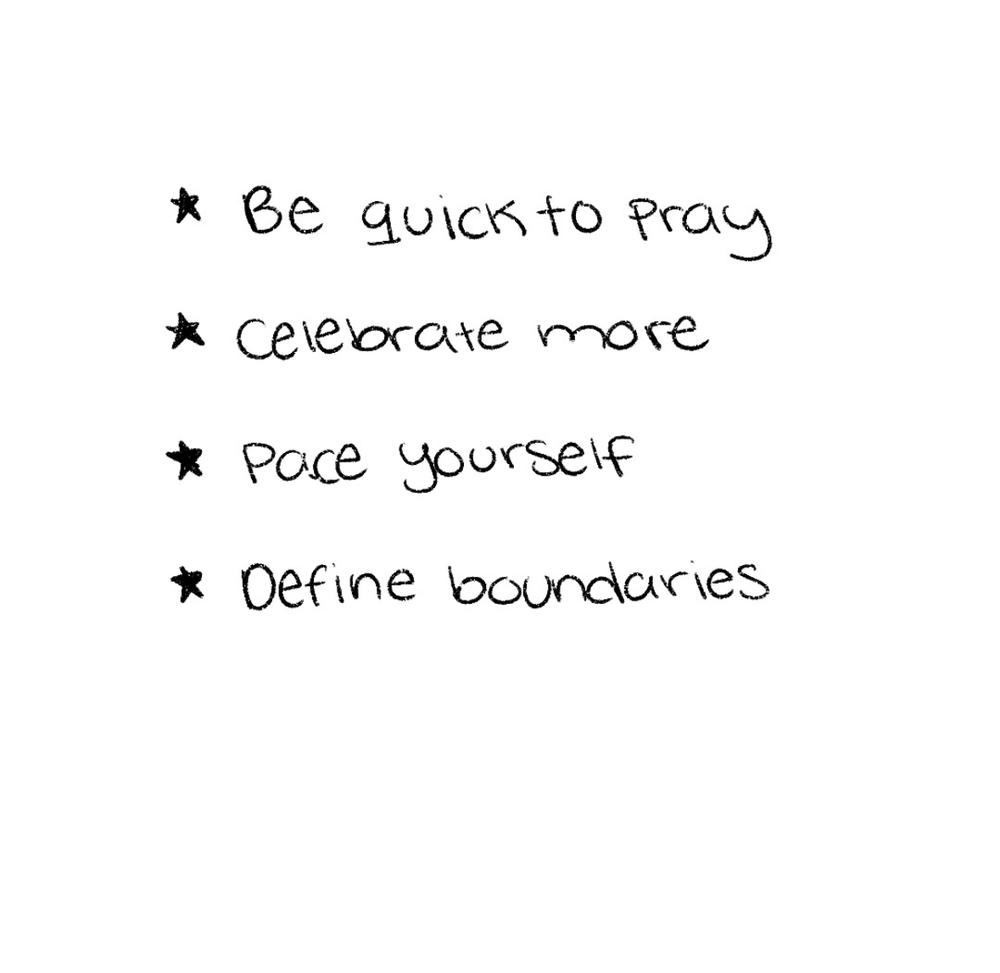 ★ Be quick to pray
★ Celebrate more
★ Pace yourself
★ Define boundaries